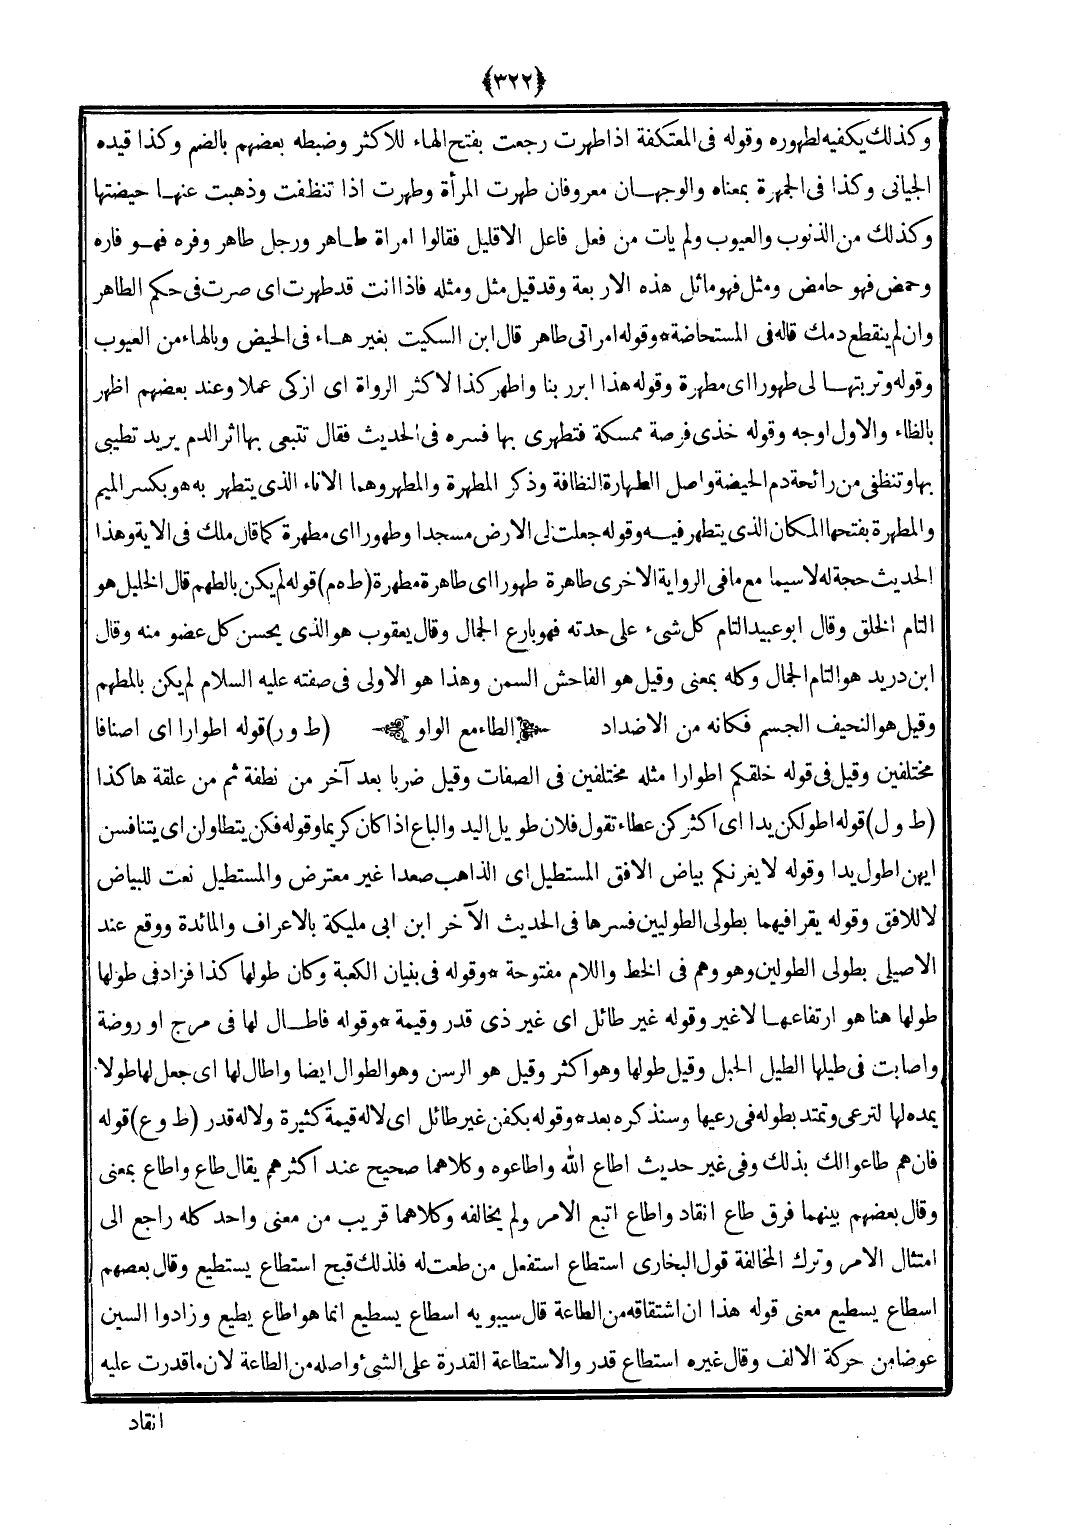 ﴿٣٢٢﴾
وكذلك يكفيه لطهوره وقوله فى المعتكفة اذا طهرت رجعت بفتح الهاء للاكثر وضبطه بعضهم بالضم وكذا قيده
الجيانى وكذا فى الجمهرة بمعناه والوجهان معروفان طهرت المرأة وطهرت اذا تنظفت وذهبت عنها حيضتها
وكذلك من الذنوب والعيوب ولم يات من فعل فاعل الا قليل فقالوا امراة طاهر ورجل طاهر وفره فهو فاره
وحمض فهو حامض ومثل فهو ماثل هذه الاربعة وقد قيل مثل ومثله فاذا انت قد طهرت اى صرت فى حكم الطاهر
وان لم ينقطع دمك قاله فى المستحاضة * وقوله امراتى طاهر قال ابن السكيت بغير هاء فى الحيض وبالهاء من العيوب
وقوله وتربتها لى طهورا اى مطهرة وقوله هذا ابر ربنا واطهر كذا لاكثر الرواة اى ازكى عملا وعند بعضهم اظهر
بالظاء والاول اوجه وقوله خذى فرصة ممسكة فتطهرى بها فسره فى الحديث فقال تتبعى بها اثر الدم يريد تطيبى
بها وتنظفى من رائحة دم الحيضة واصل الطهارة النظافة وذكر المطهرة والمطهر وهما الاناء الذى يتطهر به هو بكسر الميم
والمطهرة بفتحها المكان الذى يتطهر فيه وقوله جعلت لى الارض مسجدا وطهورا اى مطهرة كما قال ملك فى الاية وهذا
الحديث حجة له لا سيما مع ما فى الرواية الاخرى طاهرة طهورا اى طاهرة مطهرة (ط ه م) قوله لم يكن بالطهم قال الخليل هو
التام الخلق وقال ابو عبيد التام كل شىء على حدته فهو بارع الجمال وقال يعقوب هو الذى يحسن كل عضو منه وقال
ابن دريد هو التام الجمال وكله بمعنى وقيل هو الفاحش السمن وهذا هو الاولى فى صفته عليه السلام لم يكن بالمطهم
وقيل هو النحيف الجسم فكانه من الاضداد الطاء مع الواو (ط و ر) قوله اطوارا اى اصنافا
مختلفين وقيل فى قوله خلقكم اطوارا مثله مختلفين فى الصفات وقيل ضربا بعد آخر من نطفة ثم من علقة هاكذا
(ط و ل) قوله اطولكن يدا اى اكثركن عطاء تقول فلان طويل اليد والباع اذا كان كريما وقوله فكن يتطاولن اى يتنافسن
ايهن اطول يدا وقوله لا يغرنكم بياض الافق المستطيل اى الذاهب صعدا غير معترض والمستطيل نعت للبياض
لا للافق وقوله يقرا فيهما بطولى الطوليين فسرها فى الحديث الآخر ابن ابى مليكة بالاعراف والمائدة ووقع عند
الاصيلى بطولى الطولين وهو وهم فى الخط واللام مفتوحة * وقوله فى بنيان الكعبة وكان طولها كذا فزاد فى طولها
طولها هنا هو ارتفاعها لا غير وقوله غير طائل اى غير ذى قدر وقيمة * وقوله فاطال لها فى مرج او روضة
واصابت فى طيلها الطيل الحبل وقيل طولها وهو اكثر وقيل هو الرسن وهو الطوال ايضا واطال لها اى جعل لها طولا
يمده لها لترعى وتمتد بطوله فى رعيها وسنذكره بعد * وقوله بكفن غير طائل اى لا له قيمة كثيرة ولا له قدر (ط و ع) قوله
فان هم طاعوا لك بذلك وفى غير حديث اطاع الله واطاعوه وكلاهما صحيح عند اكثرهم يقال طاع واطاع بمعنى
وقال بعضهم بينهما فرق طاع انقاد واطاع اتبع الامر ولم يخالفه وكلاهما قريب من معنى واحد كله راجع الى
امتثال الامر وترك المخالفة قول البخارى استطاع استفعل من طعت له فلذلك قبح استطاع يستطيع وقال بعضهم
اسطاع يسطيع معنى قوله هذا ان اشتقاقه من الطاعة قال سيبويه اسطاع يسطيع انما هو اطاع يطيع وزادوا السين
عوضا من حركة الالف وقال غيره استطاع قدر والاستطاعة القدرة على الشىء واصله من الطاعة لان ما قدرت عليه
انقاد